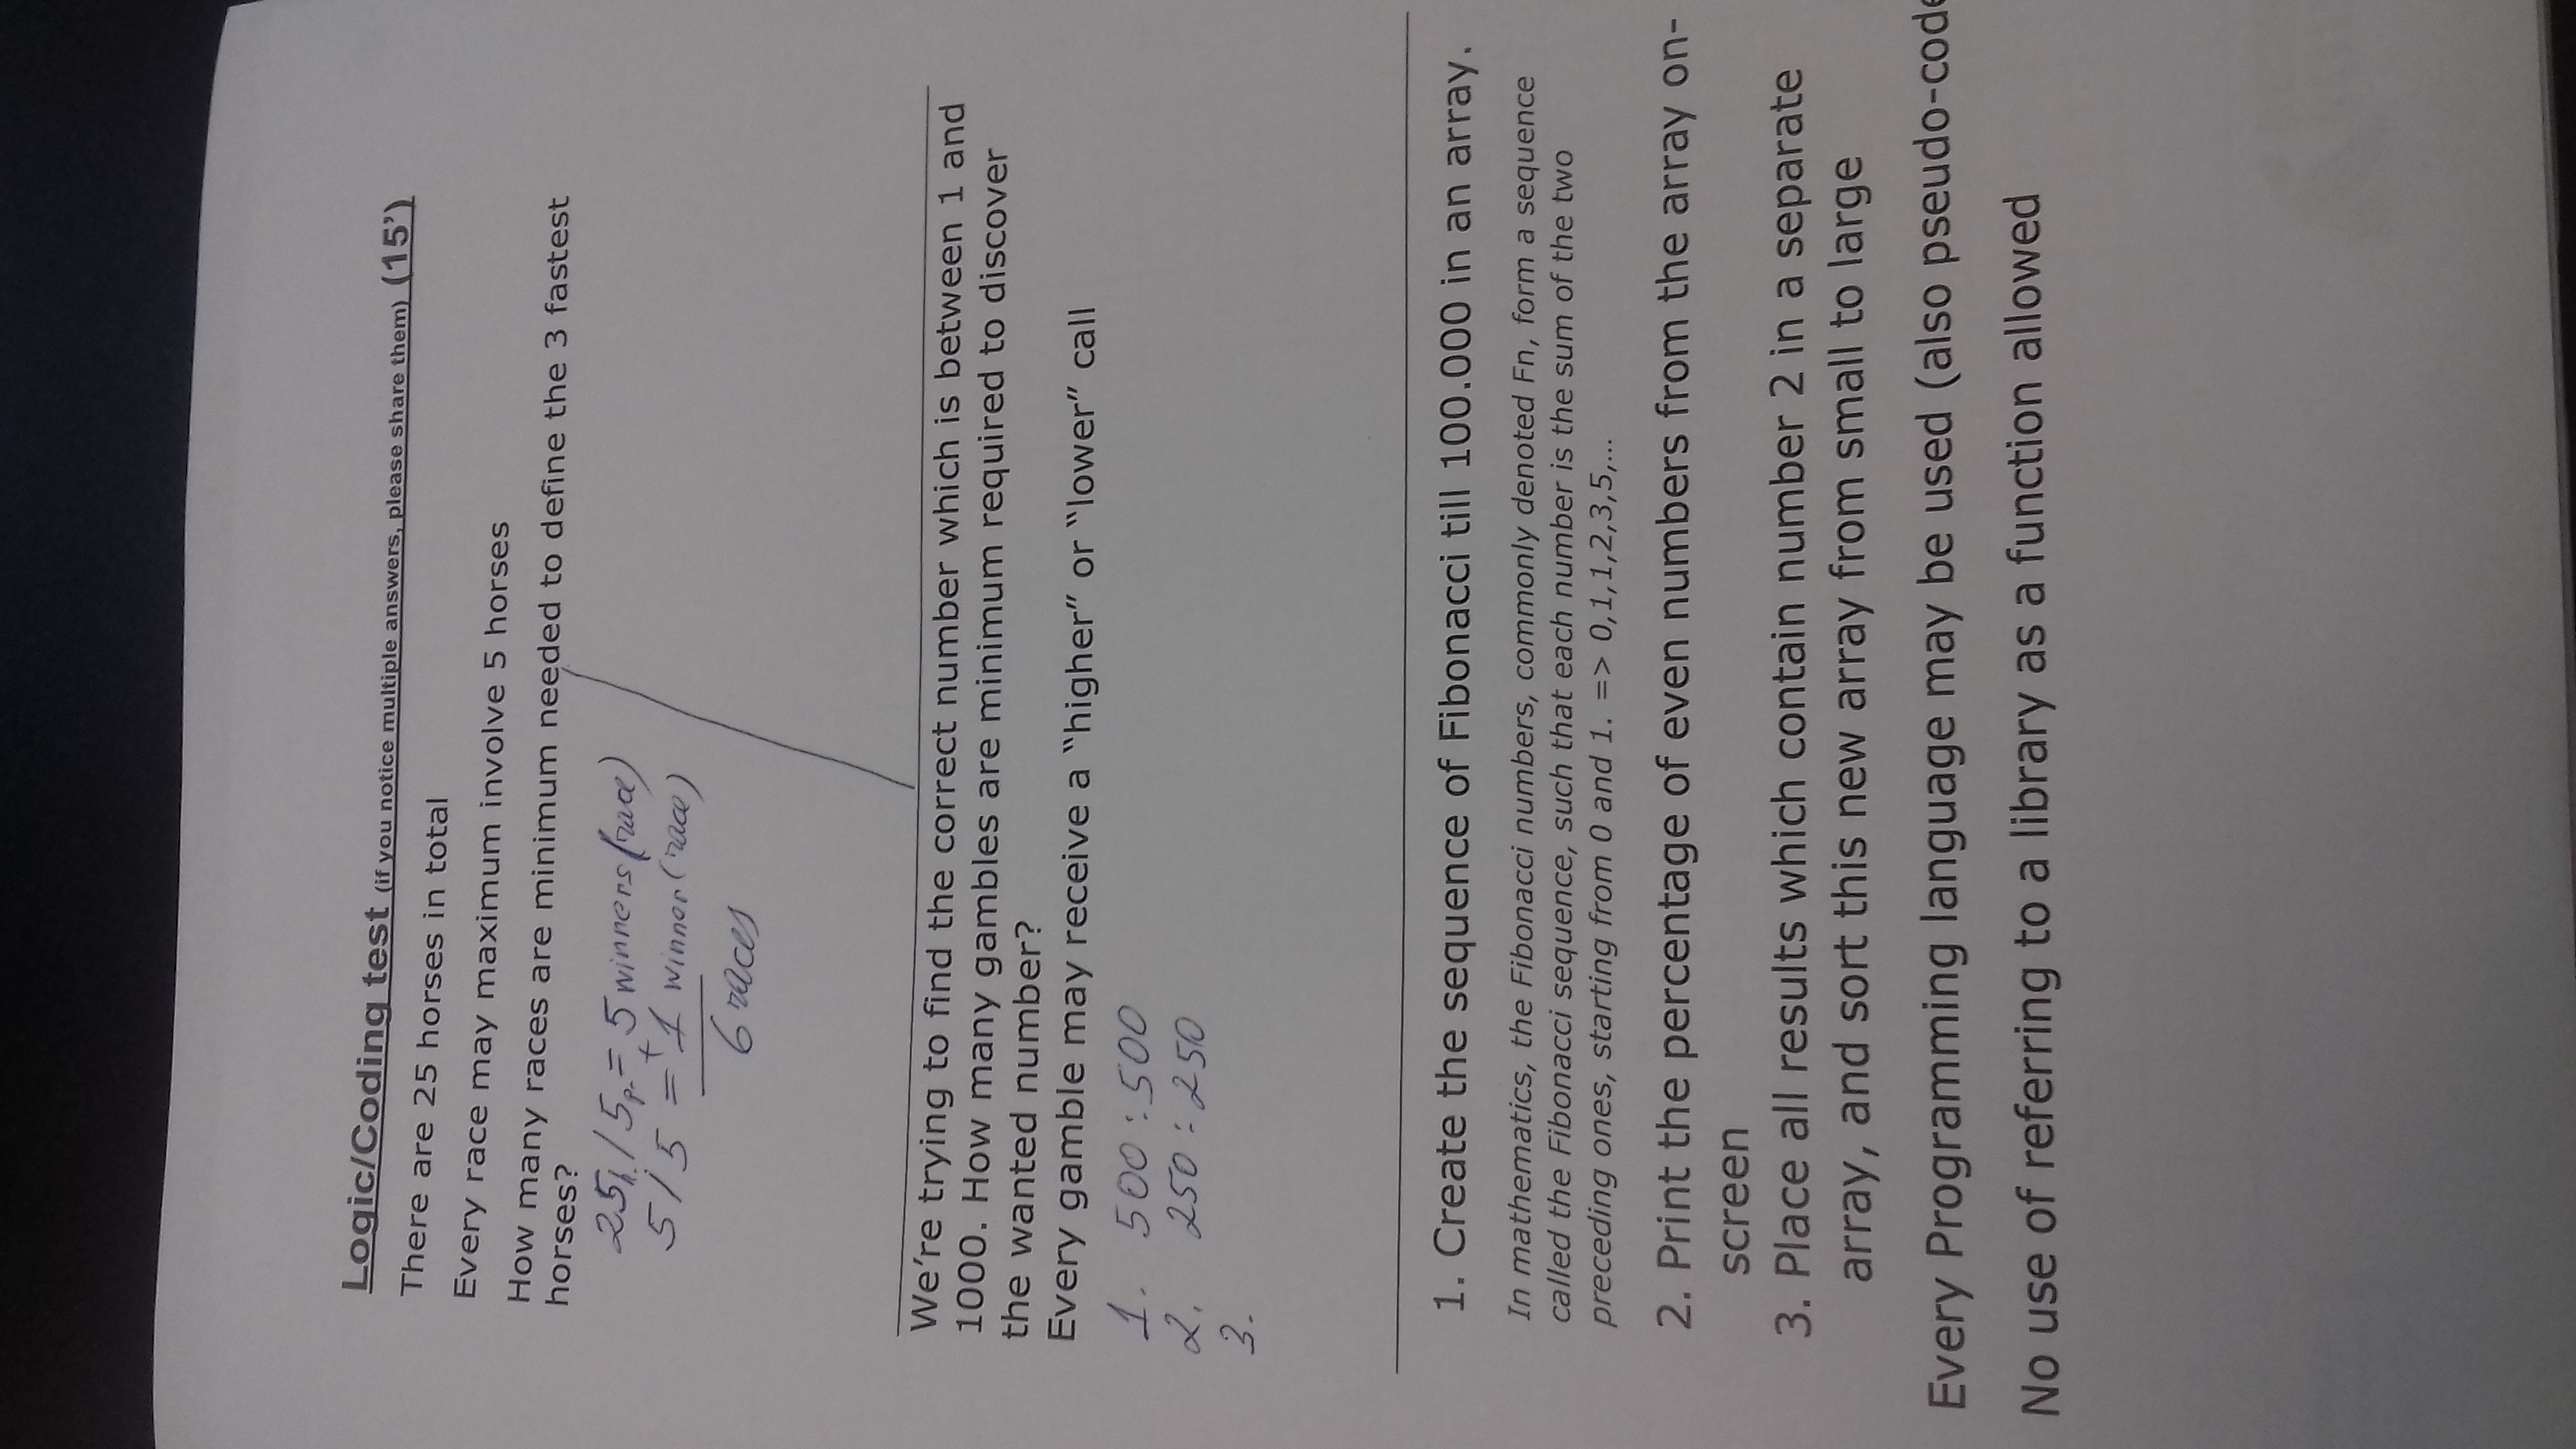 Logic/Coding test (if you notice multiple answers, please share them) (15')
There are 25 horses in total
Every race may maximum involve 5 horses
How many races are minimum needed to define the 3 fastest
horses?
25h./5p.= 5 winners (race)
5/5 = +1 winner (race)
6 races
We're trying to find the correct number which is between 1 and
1000. How many gambles are minimum required to discover
the wanted number?
Every gamble may receive a "higher" or "lower" call
1. 500 : 500
2. 250 : 250
3.
1. Create the sequence of Fibonacci till 100.000 in an array.
In mathematics, the Fibonacci numbers, commonly denoted Fn, form a sequence
called the Fibonacci sequence, such that each number is the sum of the two
preceding ones, starting from 0 and 1. => 0,1,1,2,3,5,...
2. Print the percentage of even numbers from the array on-
screen
3. Place all results which contain number 2 in a separate
array, and sort this new array from small to large
Every Programming language may be used (also pseudo-code
No use of referring to a library as a function allowed